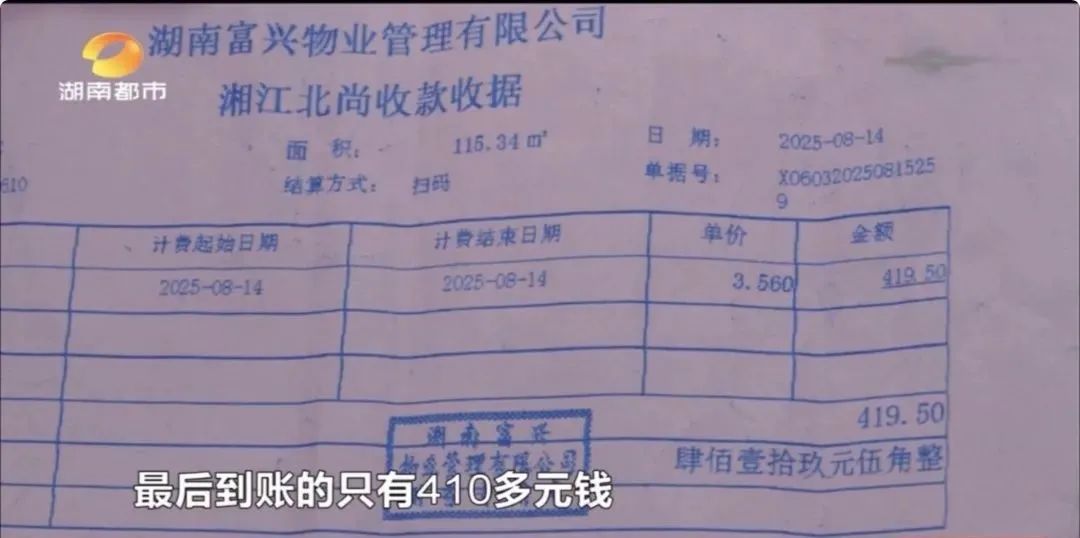 湖南富兴物业管理有限公司
湖南都市
湘江北尚收款收据
面 积： 115.34㎡ 日 期： 2025-08-14
610 结算方式： 扫码 单据号： X06032025081525
9
计费起始日期 计费结束日期 单价 金额
2025-08-14 2025-08-14 3.560 419.50
419.50
湖南富兴
物业管理有限公司
肆佰壹拾玖元伍角整
最后到账的只有410多元钱